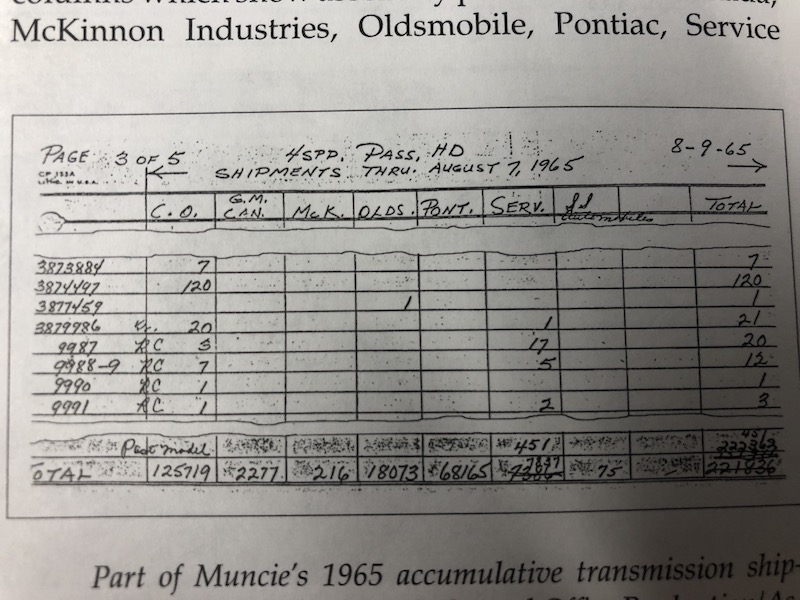 McKinnon Industries, Oldsmobile, Pontiac, Service
PAGE 3 OF 5 4SPD. PASS, HD 8-9-65
SHIPMENTS THRU. AUGUST 7, 1965
C.O. G.M. CAN. McK. OLDS. PONT. SERV. automobiles TOTAL
3873884 7 7
3874497 120 120
3877459 1 1
3879986 20 1 21
9987 RC 3 17 20
9988-9 RC 7 5 12
9990 RC 1 1
9991 RC 1 2 3
Past model 451
TOTAL 125719 2277 216 18073 68165 75
Part of Muncie's 1965 accumulative transmission ship-